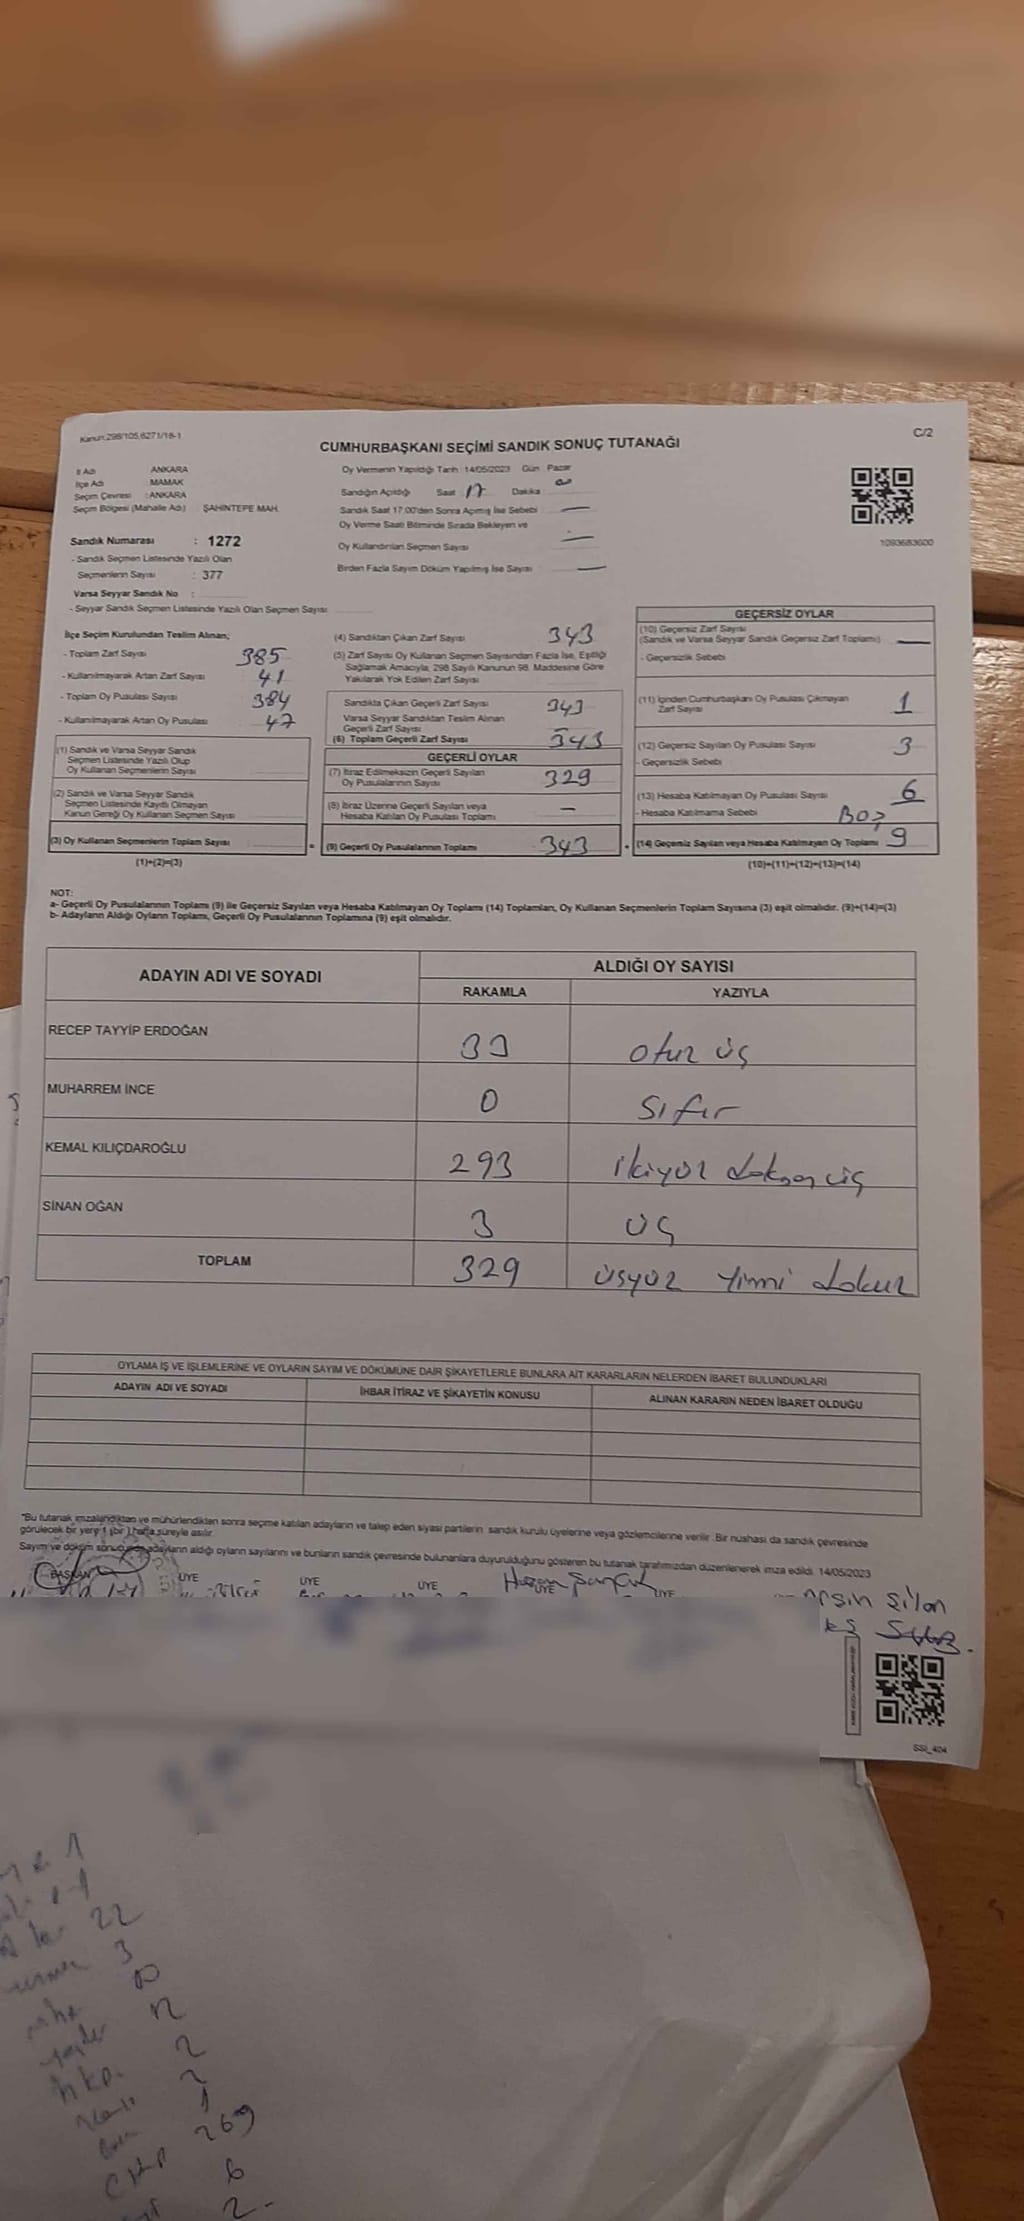 Kanun:298/105,6271/18-1
C/2
CUMHURBAŞKANI SEÇİMİ SANDIK SONUÇ TUTANAĞI
İl Adı ANKARA
İlçe Adı MAMAK
Seçim Çevresi : ANKARA
Seçim Bölgesi (Mahalle Adı) ŞAHİNTEPE MAH.
Sandık Numarası : 1272
- Sandık Seçmen Listesinde Yazılı Olan
Seçmenlerin Sayısı : 377
Varsa Seyyar Sandık No :
- Seyyar Sandık Seçmen Listesinde Yazılı Olan Seçmen Sayısı
Oy Vermenin Yapıldığı Tarih : 14/05/2023 Gün Pazar
Sandığın Açıldığı Saat 17 Dakika
Sandık Saat 17:00'den Sonra Açımış İse Sebebi —
Oy Verme Saati Bitiminde Sırada Bekleyen ve
Oy Kullandırılan Seçmen Sayısı —
Birden Fazla Sayım Döküm Yapılmış İse Sayısı —
1093683600
İlçe Seçim Kurulundan Teslim Alınan;
- Toplam Zarf Sayısı 385
- Kullanılmayarak Artan Zarf Sayısı 41
- Toplam Oy Pusulası Sayısı 384
- Kullanılmayarak Artan Oy Pusulası 47
(1) Sandık ve Varsa Seyyar Sandık
Seçmen Listesinde Yazılı Olup
Oy Kullanan Seçmenlerin Sayısı
(2) Sandık ve Varsa Seyyar Sandık
Seçmen Listesinde Kayıtlı Olmayan
Kanun Gereği Oy Kullanan Seçmen Sayısı
(3) Oy Kullanan Seçmenlerin Toplam Sayısı
(1)+(2)=(3)
(4) Sandıktan Çıkan Zarf Sayısı 343
(5) Zarf Sayısı Oy Kullanan Seçmen Sayısından Fazla İse, Eşitliği
Sağlamak Amacıyla, 298 Sayılı Kanunun 98. Maddesine Göre
Yakılarak Yok Edilen Zarf Sayısı
Sandıkta Çıkan Geçerli Zarf Sayısı 343
Varsa Seyyar Sandıktan Teslim Alınan
Geçerli Zarf Sayısı
(6) Toplam Geçerli Zarf Sayısı 343
GEÇERLİ OYLAR
(7) İtiraz Edilmeksizin Geçerli Sayılan
Oy Pusulalarının Sayısı 329
(8) İtiraz Üzerine Geçerli Sayılan veya
Hesaba Katılan Oy Pusulası Toplamı —
= (9) Geçerli Oy Pusulalarının Toplamı 343
GEÇERSİZ OYLAR
(10) Geçersiz Zarf Sayısı
(Sandık ve Varsa Seyyar Sandık Geçersiz Zarf Toplamı) —
- Geçersizlik Sebebi
(11) İçinden Cumhurbaşkanı Oy Pusulası Çıkmayan
Zarf Sayısı 1
(12) Geçersiz Sayılan Oy Pusulası Sayısı 3
- Geçersizlik Sebebi
(13) Hesaba Katılmayan Oy Pusulası Sayısı 6
- Hesaba Katılmama Sebebi BOŞ
+ (14) Geçersiz Sayılan veya Hesaba Katılmayan Oy Toplamı 9
(10)+(11)+(12)+(13)=(14)
NOT:
a- Geçerli Oy Pusulalarının Toplamı (9) ile Geçersiz Sayılan veya Hesaba Katılmayan Oy Toplamı (14) Toplamları, Oy Kullanan Seçmenlerin Toplam Sayısına (3) eşit olmalıdır. (9)+(14)=(3)
b- Adayların Aldığı Oyların Toplamı, Geçerli Oy Pusulalarının Toplamına (9) eşit olmalıdır.
ADAYIN ADI VE SOYADI ALDIĞI OY SAYISI
RAKAMLA YAZIYLA
RECEP TAYYİP ERDOĞAN 33 otuz üç
MUHARREM İNCE 0 sıfır
KEMAL KILIÇDAROĞLU 293 ikiyüz doksan üç
SİNAN OĞAN 3 üç
TOPLAM 329 üsyüz yirmi dokuz
OYLAMA İŞ VE İŞLEMLERİNE VE OYLARIN SAYIM VE DÖKÜMÜNE DAİR ŞİKAYETLERLE BUNLARA AİT KARARLARIN NELERDEN İBARET BULUNDUKLARI
ADAYIN ADI VE SOYADI İHBAR İTİRAZ VE ŞİKAYETİN KONUSU ALINAN KARARIN NEDEN İBARET OLDUĞU
"Bu tutanak imzalandıktan ve mühürlendikten sonra seçime katılan adayların ve talep eden siyasi partilerin sandık kurulu üyelerine veya gözlemcilerine verilir. Bir nüshası da sandık çevresinde
görülecek bir yere 1 (bir) hafta süreyle asılır.
Sayım ve döküm sonucunda adayların aldığı oyların sayılarını ve bunların sandık çevresinde bulunanlara duyurulduğunu gösteren bu tutanak tarafımızdan düzenlenerek imza edildi. 14/05/2023
BAŞKAN ÜYE ÜYE ÜYE ÜYE ÜYE
SSI_404
22
3
2
2
1
CHP 269
6
2